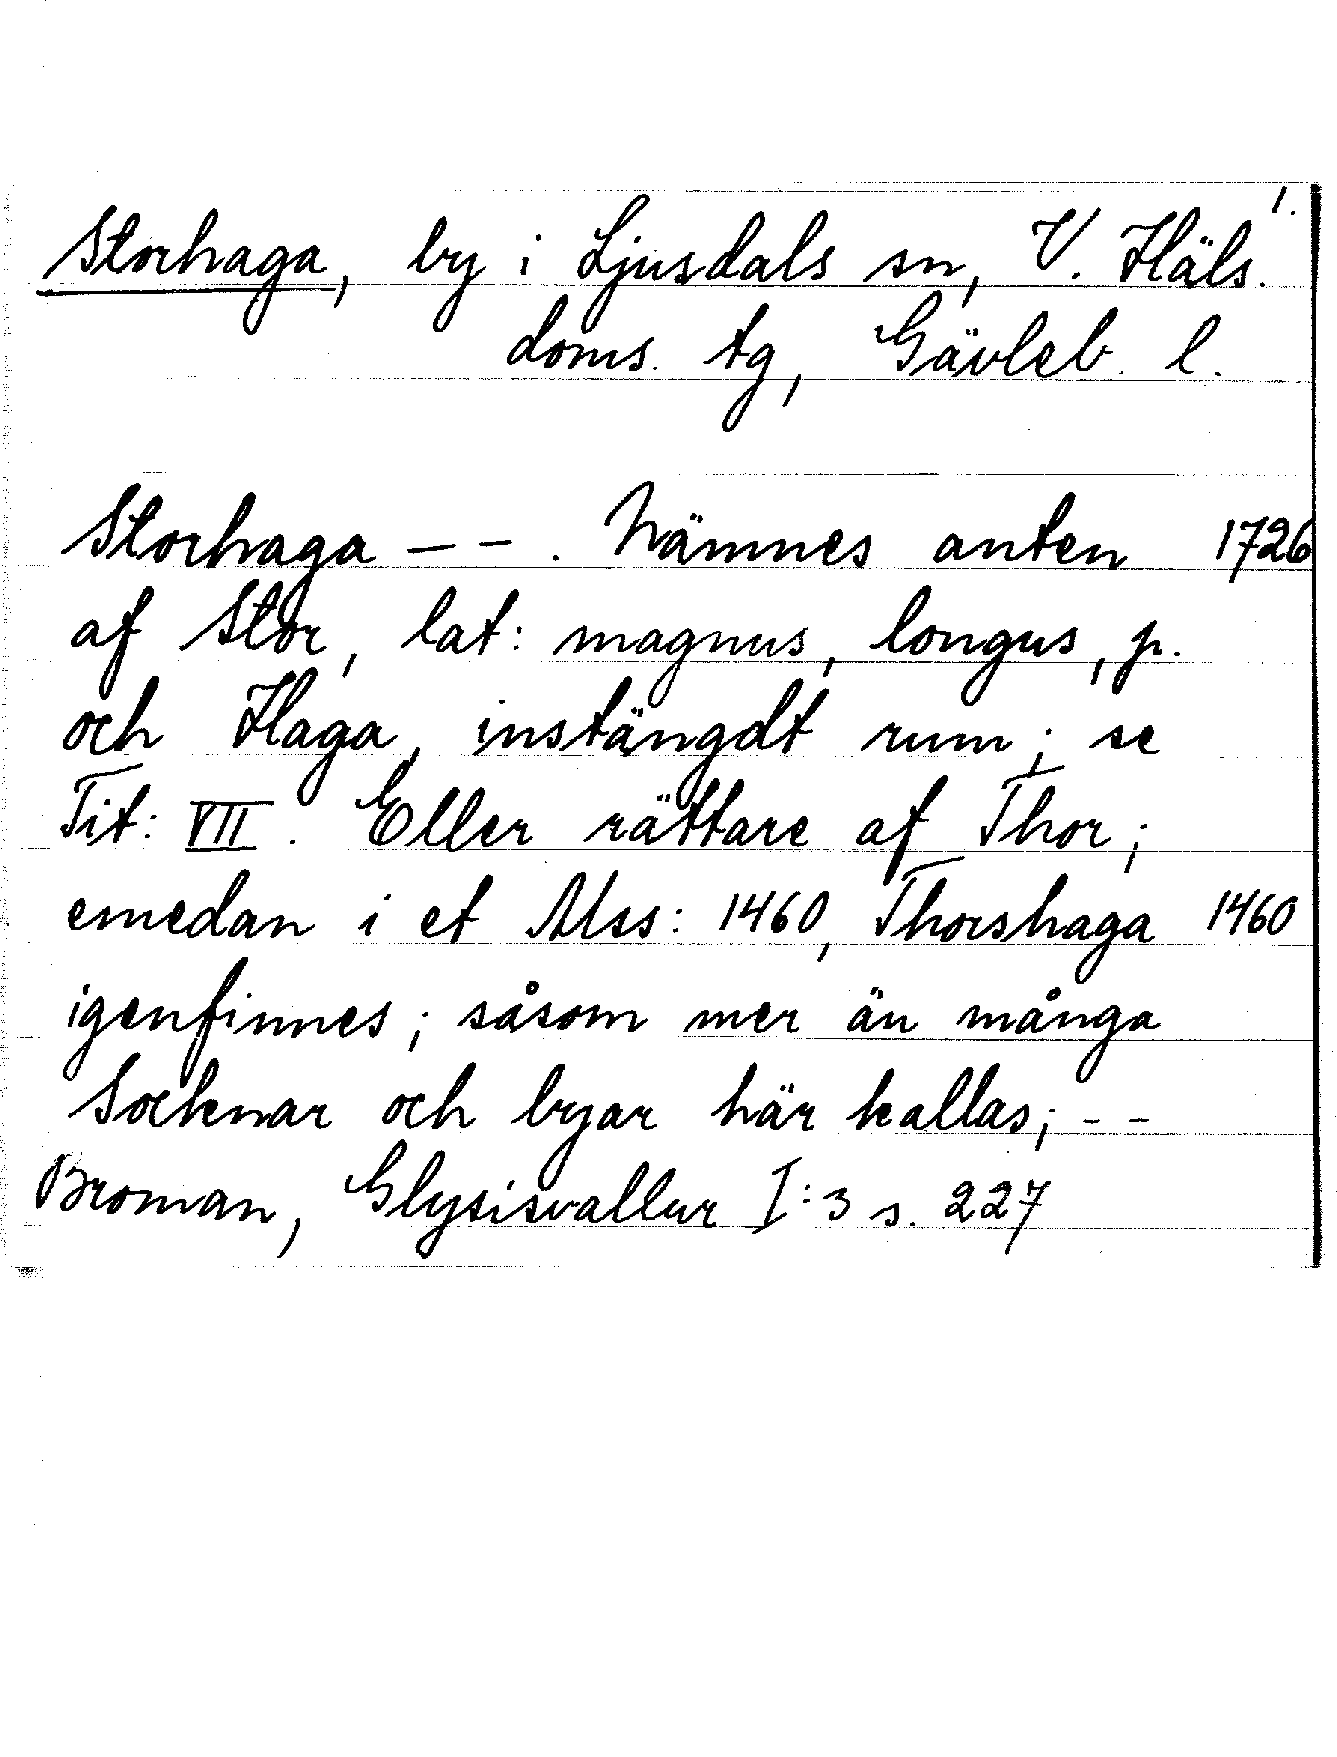 1.
Storhaga, by i Ljusdals sn, V. Häls.
doms. tg, Gävleb. l.
Storhaga -- . Nämnes anten 1726
af Stor, lat: magnus, longus, p.
och Haga, instängdt rum; se
Tit: VII. Eller rättare af Thor;
emedan i et Mss: 1460, Thorshaga 1460
igenfinnes; såsom mer än många
Socknar och byar här kallas; --
Broman, Glysisvallur I:3 s. 227